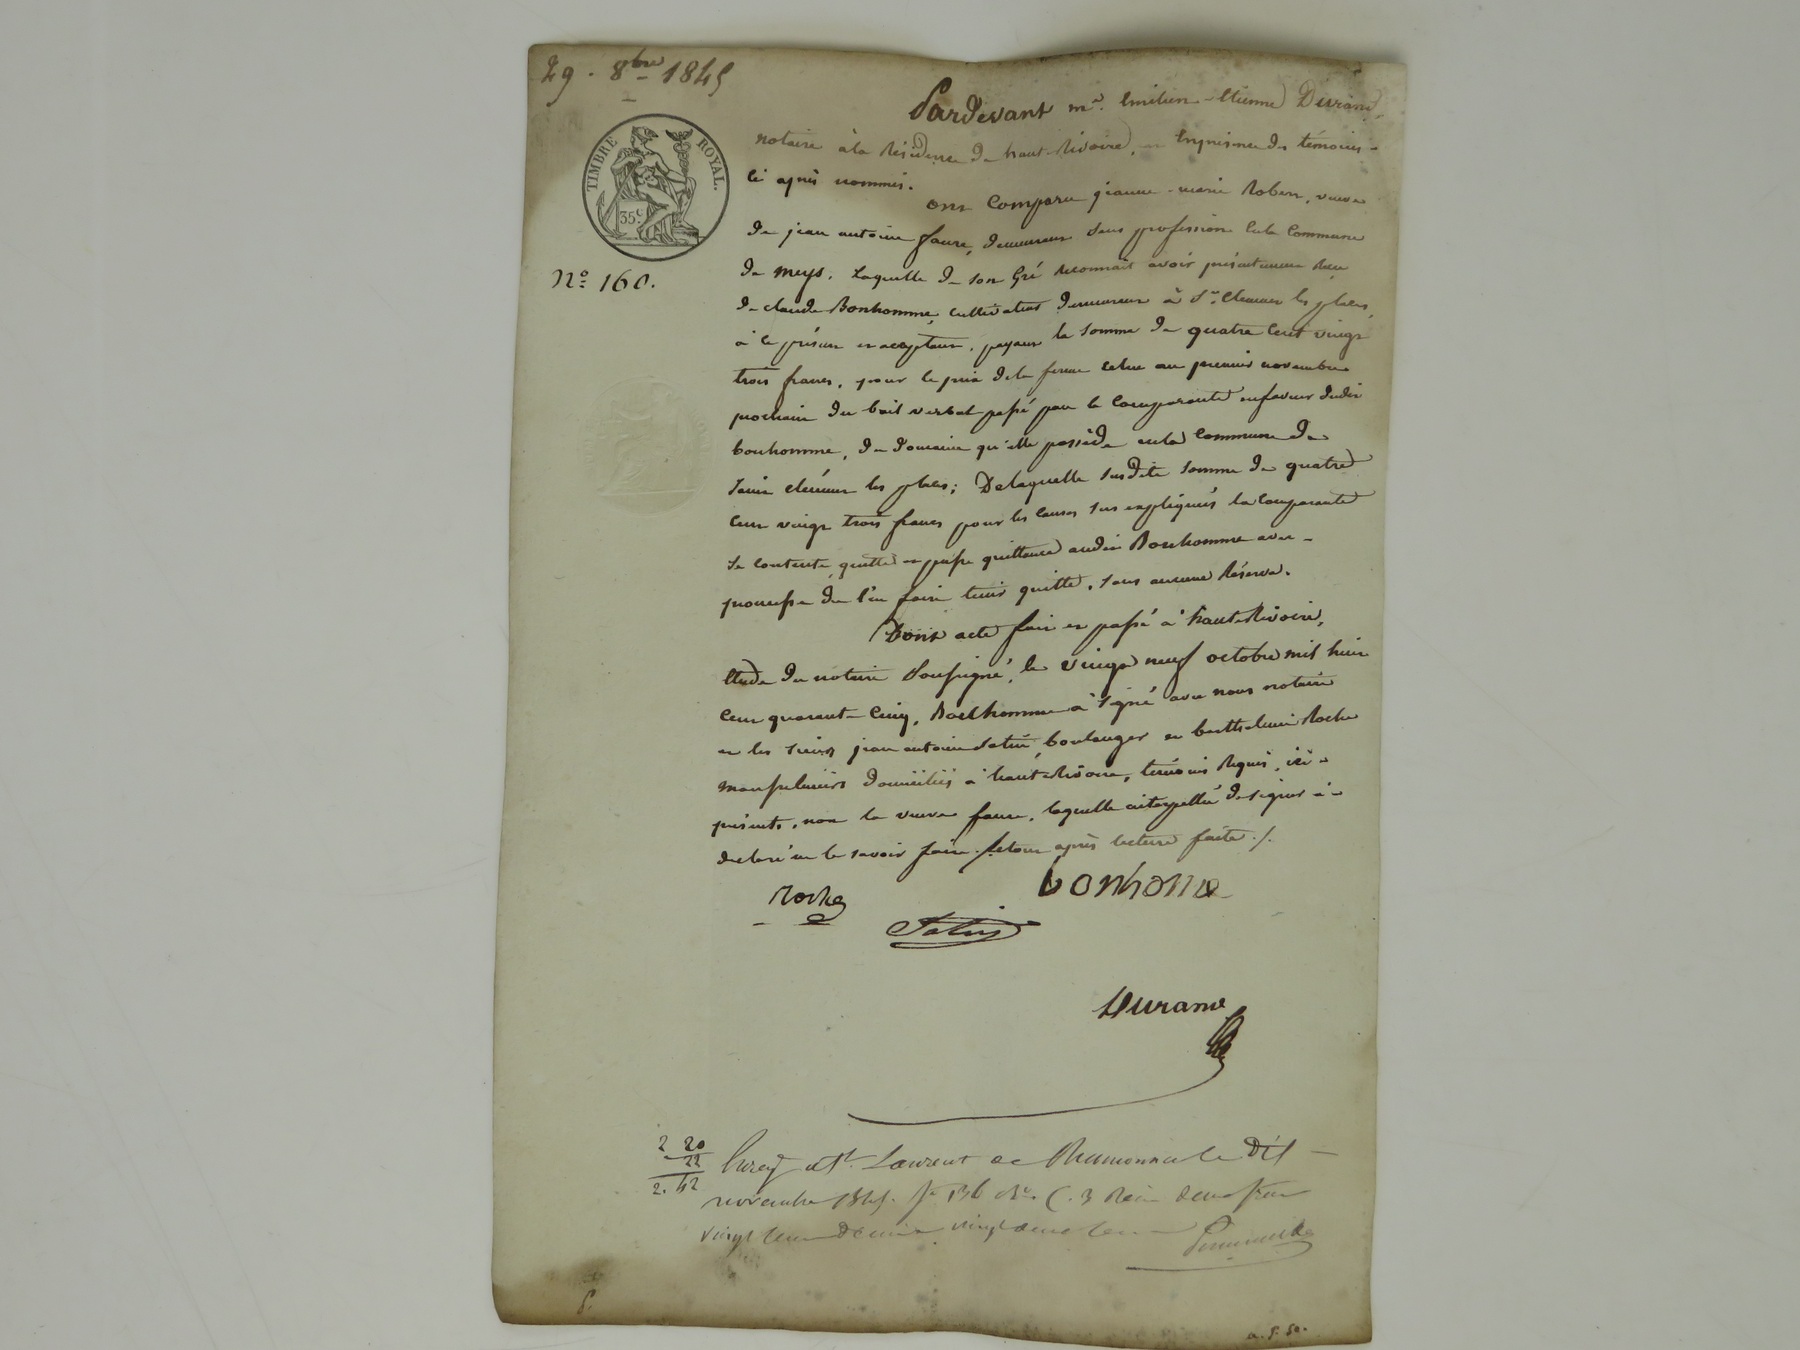 29. 8bre 1845
TIMBRE ROYAL.
35c
No. 160.
Pardevant me. Emilien-Etienne Durand,
notaire à la Résidence de haut-Rivoire, en présence des témoins
ci après nommés.
Ont Comparu jeanne-marie Robin, veuve
de jean antoine faure, demeurant sans profession en la Commune
de meys. Laquelle de son Gré Reconnait avoir présentement Reçu
de claude Bonhomme, cultivateur demeurant à St. Clément les places,
à ce présent et acceptant, payant la somme de quatre cent vingt
trois francs, pour le prix de la ferme échue au premier novembre
prochain du bail verbal passé par la Comparante en faveur dudit
bonhomme, du domaine qu'elle possède en la Commune de
Saint clément les places; De laquelle susdite somme de quatre
cent vingt trois francs pour les causes sus expliquées la Comparante
se contente, quitte et passe quittance audit Bonhomme avec
promesse de l'en faire tenir quitte, sans aucune Réserve.
Dont acte fait et passé à haut-Rivoire,
étude du notaire soussigné, le vingt neuf octobre mil huit
cent quarante-cinq, Bonhomme a signé avec nous notaire
et les sieurs jean antoine boulanger et barthelemi Roche
domiciliés à haut-Rivoire, témoins Requis, ici
présents, non la veuve faure, laquelle interpellée de signer a
déclaré ne le savoir faire. le tout après lecture faite ./.
Roche
bonhome
Durand
2 20
22
2. 42
Enreg. à St. Laurent de Chamousset le Dix
novembre 1845. fo 136 Ro. C. 3 Reçu deux francs
vingt cent Décime vingt deux cent
a. 5. 50.